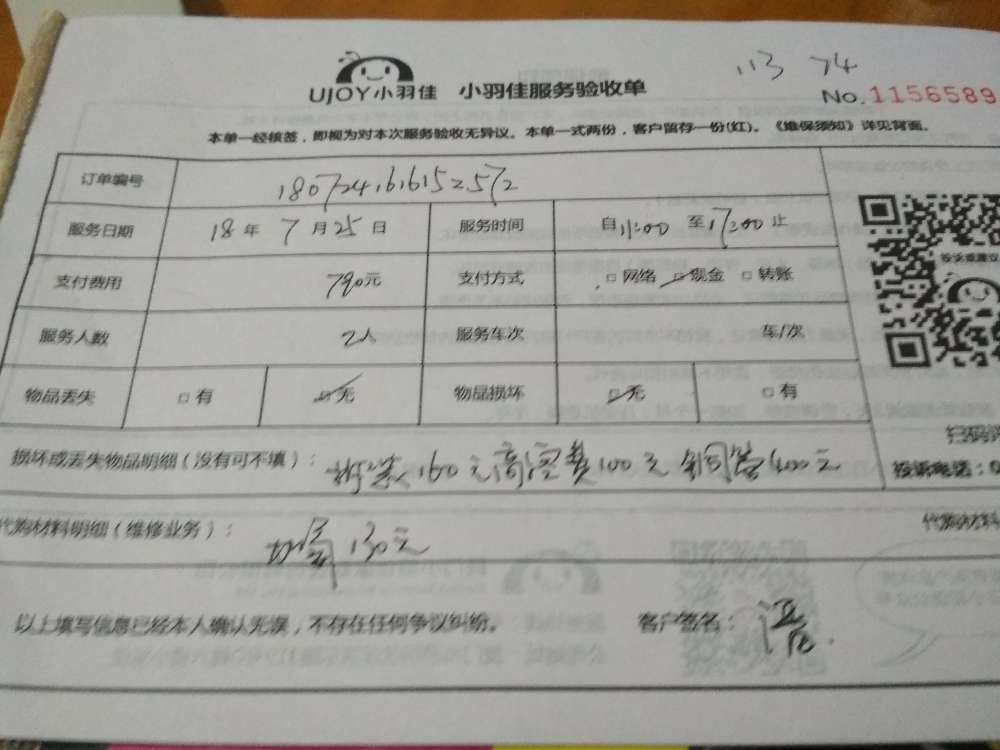 113 74
UJOY小羽佳 小羽佳服务验收单
No.1156589
本单一经核签，即视为对本次服务验收无异议。本单一式两份，客户留存一份(红)。《维保须知》详见背面。
订单编号 1807241616152572
服务日期 18年7月25日 服务时间 自11:00至17:00止
支付费用 790元 支付方式 □网络 □现金 □转账
投诉或建议
服务人数 2人 服务车次 车/次
物品丢失 □有 □无 物品损坏 □无 □有
扫码
损坏或丢失物品明细（没有可不填）： 拆装160元高空费100元 铜管400元
投诉电话：0
代购材料明细（维修业务）： 加氟130元
代购材料
以上填写信息已经本人确认无误，不存在任何争议纠纷。 客户签名：